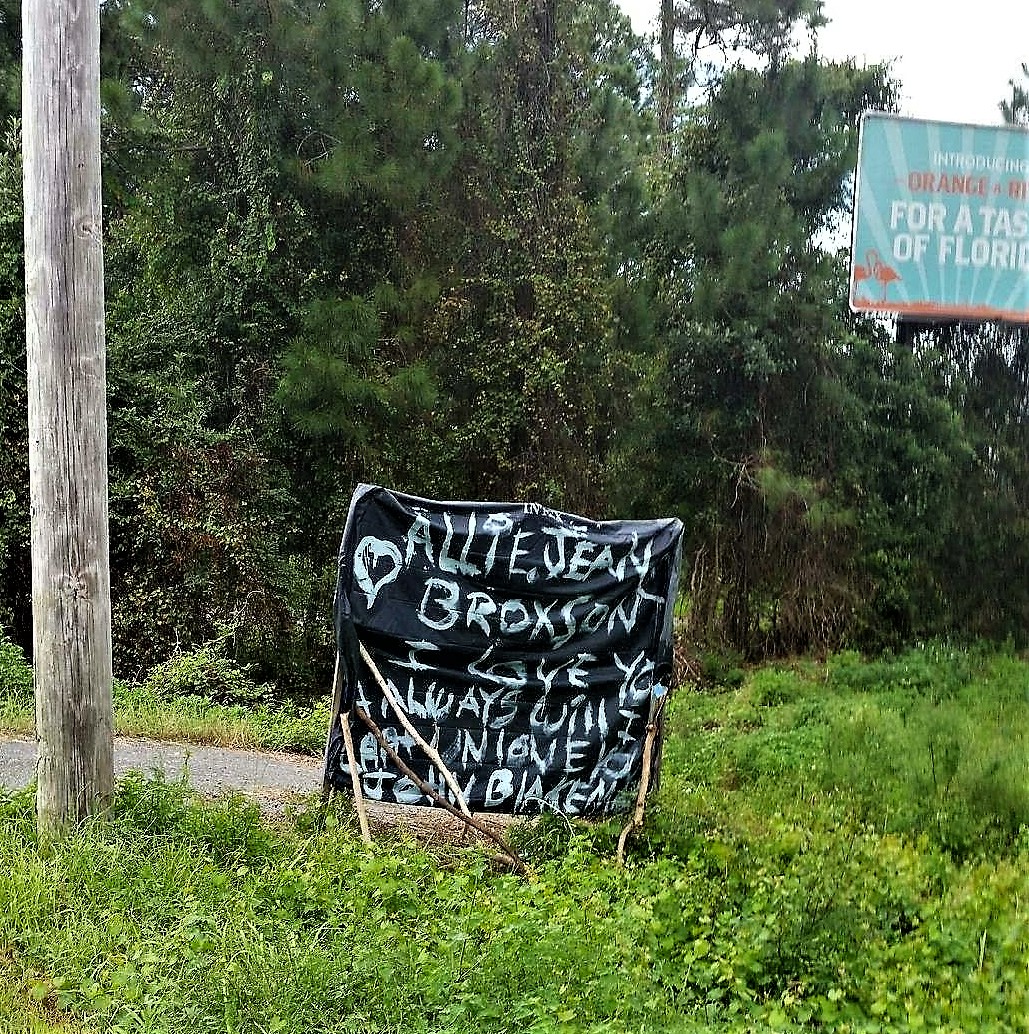 INTRODUCING
ORANGE & R
FOR A TAS
OF FLORID
ALLIE JEAN
BROXSON
I LOVE YO
ALWAYS Will
JOHN BLAKEN